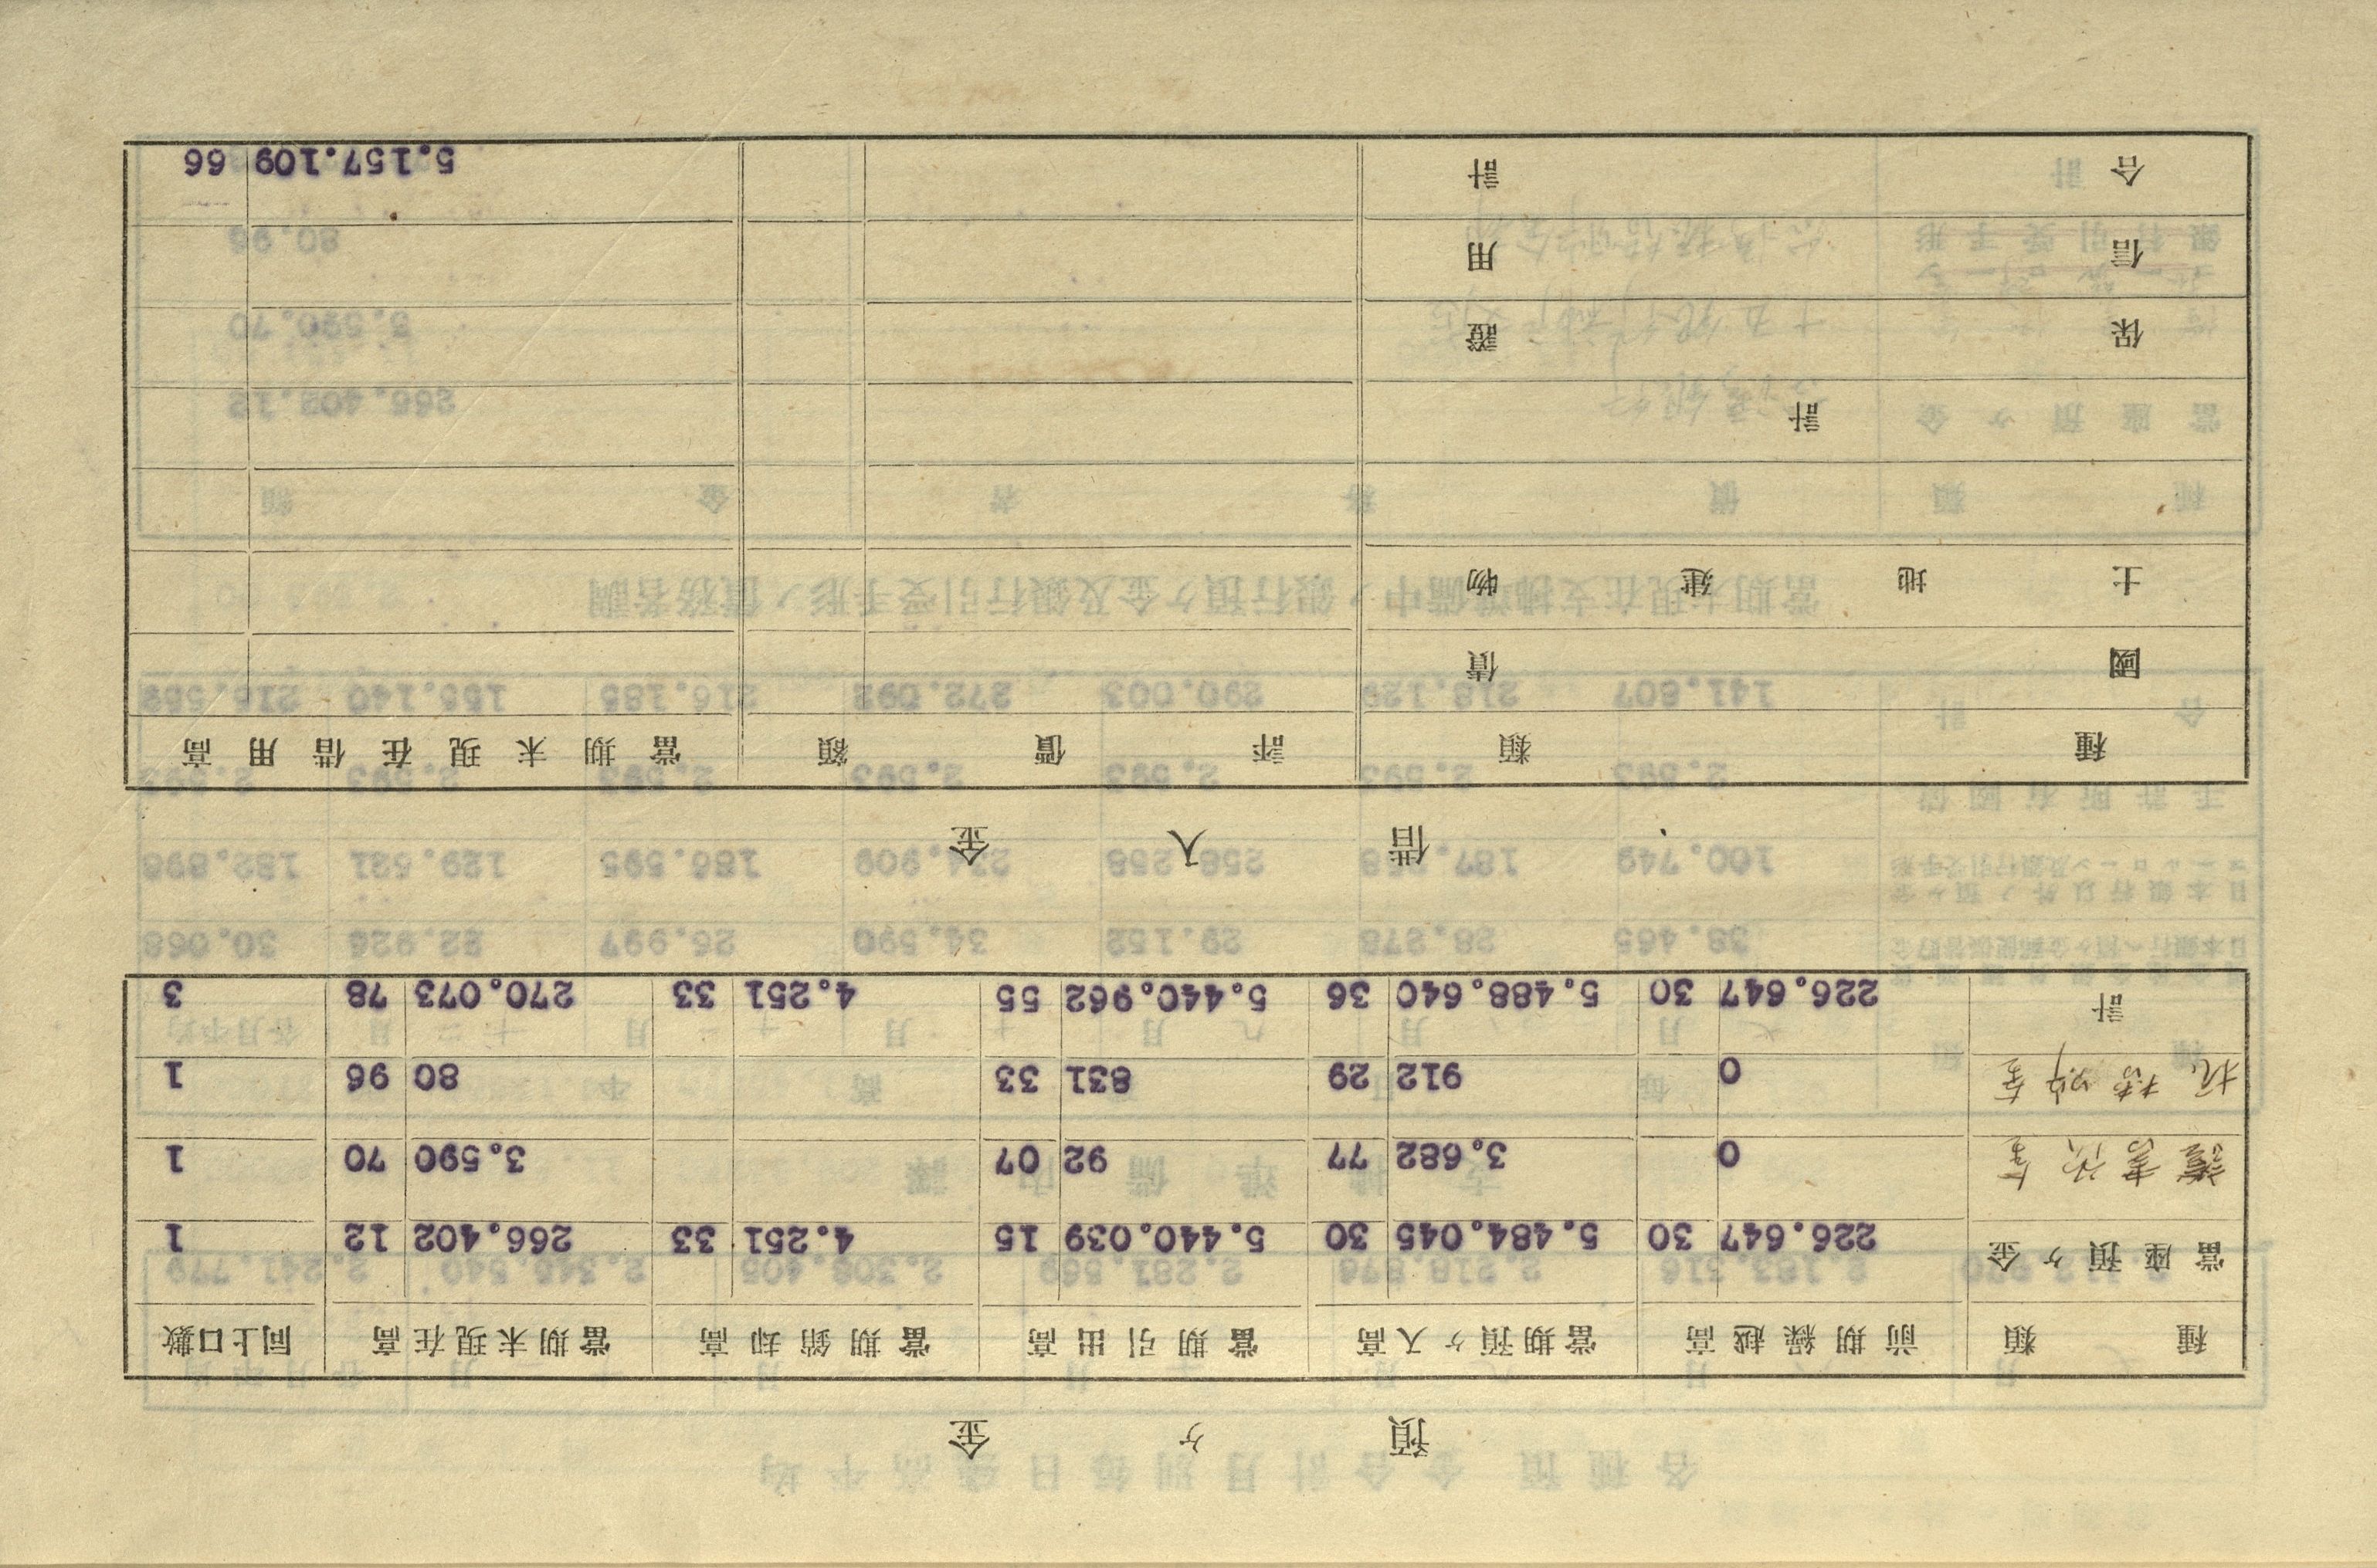 預ヶ金
種類 前期繰越高 當期預ヶ入高 當期引出高 當期銷却高 當期末現在高 同上口數
當座預ヶ金 226.647 30 5.484.045 30 5.440.039 15 4.251 33 266.402 12 1
金 0 3.682 77 92 07 3.590 70 1
振替貯金 0 912 29 831 33 80 96 1
計 226.647 30 5.488.640 36 5.440.962 55 4.251 33 270.073 78 3
借入金
種類 評價額 當期末現在借用高
國債
土地建物
計
保證
信用
合計 5.157.109 66